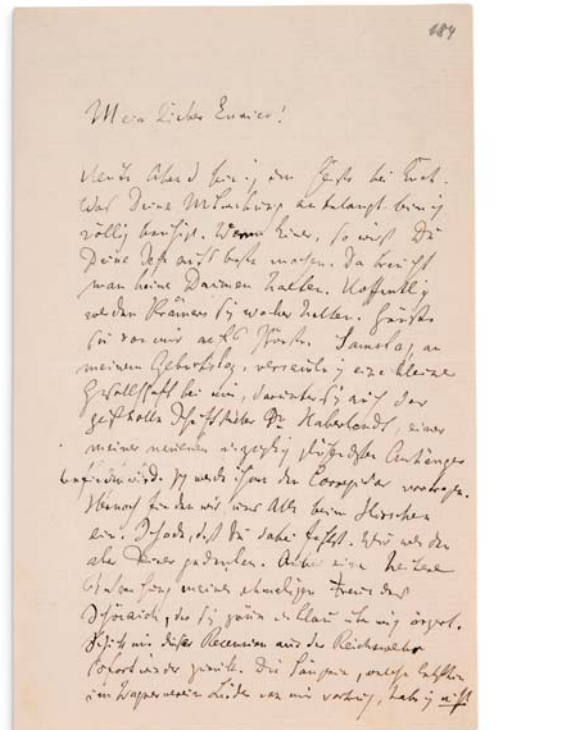 184
Mein lieber Enrico!
Heute Abend bin ich im Geiste bei Euch.
Was Deine Mitwirkung anbelangt bin ich
völlig beruhigt. Wenn Einer, so wirst Du
Deine Sache aufs beste machen. Da braucht
man keine Daumen halten. Hoffentlich
werden Krämers sich wacker halten. Grüße
sie von mir aufs Schönste. Samstag, an
meinem Geburtstag, versammle ich eine kleine
Gesellschaft bei mir, darunter sich auch der
geistvolle Schriftsteller Dr. Haberlandt, einer
meiner neuen Anhänger
befinden wird. Ich werde ihnen den Corregidor vortragen.
Hernach finden wir uns Alle beim Hirschen
ein. Schade, daß Du dabei fehlst. Wir werden
aber Deiner gedenken. Anbei eine heitere
meines ehemaligen Freundes
Schönaich, der sich grün und blau über mich ärgert.
Schick mir diese Recension aus der Reichswehr
sofort wieder zurück. Die Sängerin, welche letzthin
im Wagnerverein Lieder von mir vortrug, habe ich nicht